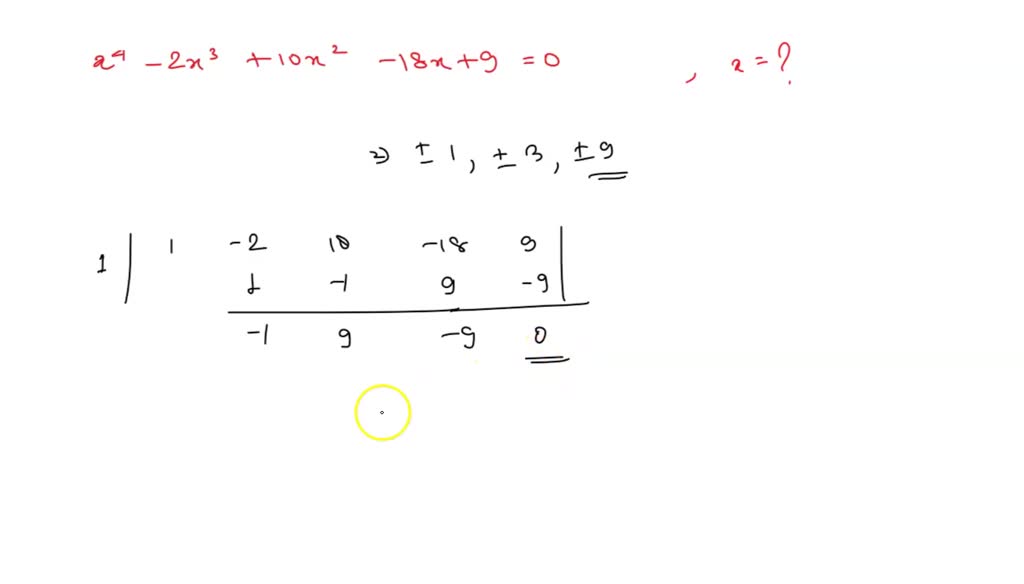 x⁴ - 2x³ + 10x² - 18x + 9 = 0 , x = ?
⇒ ± 1, ± 3, ± 9
1 | 1 -2 10 -18 9 |
1 -1 9 -9
-1 9 -9 0